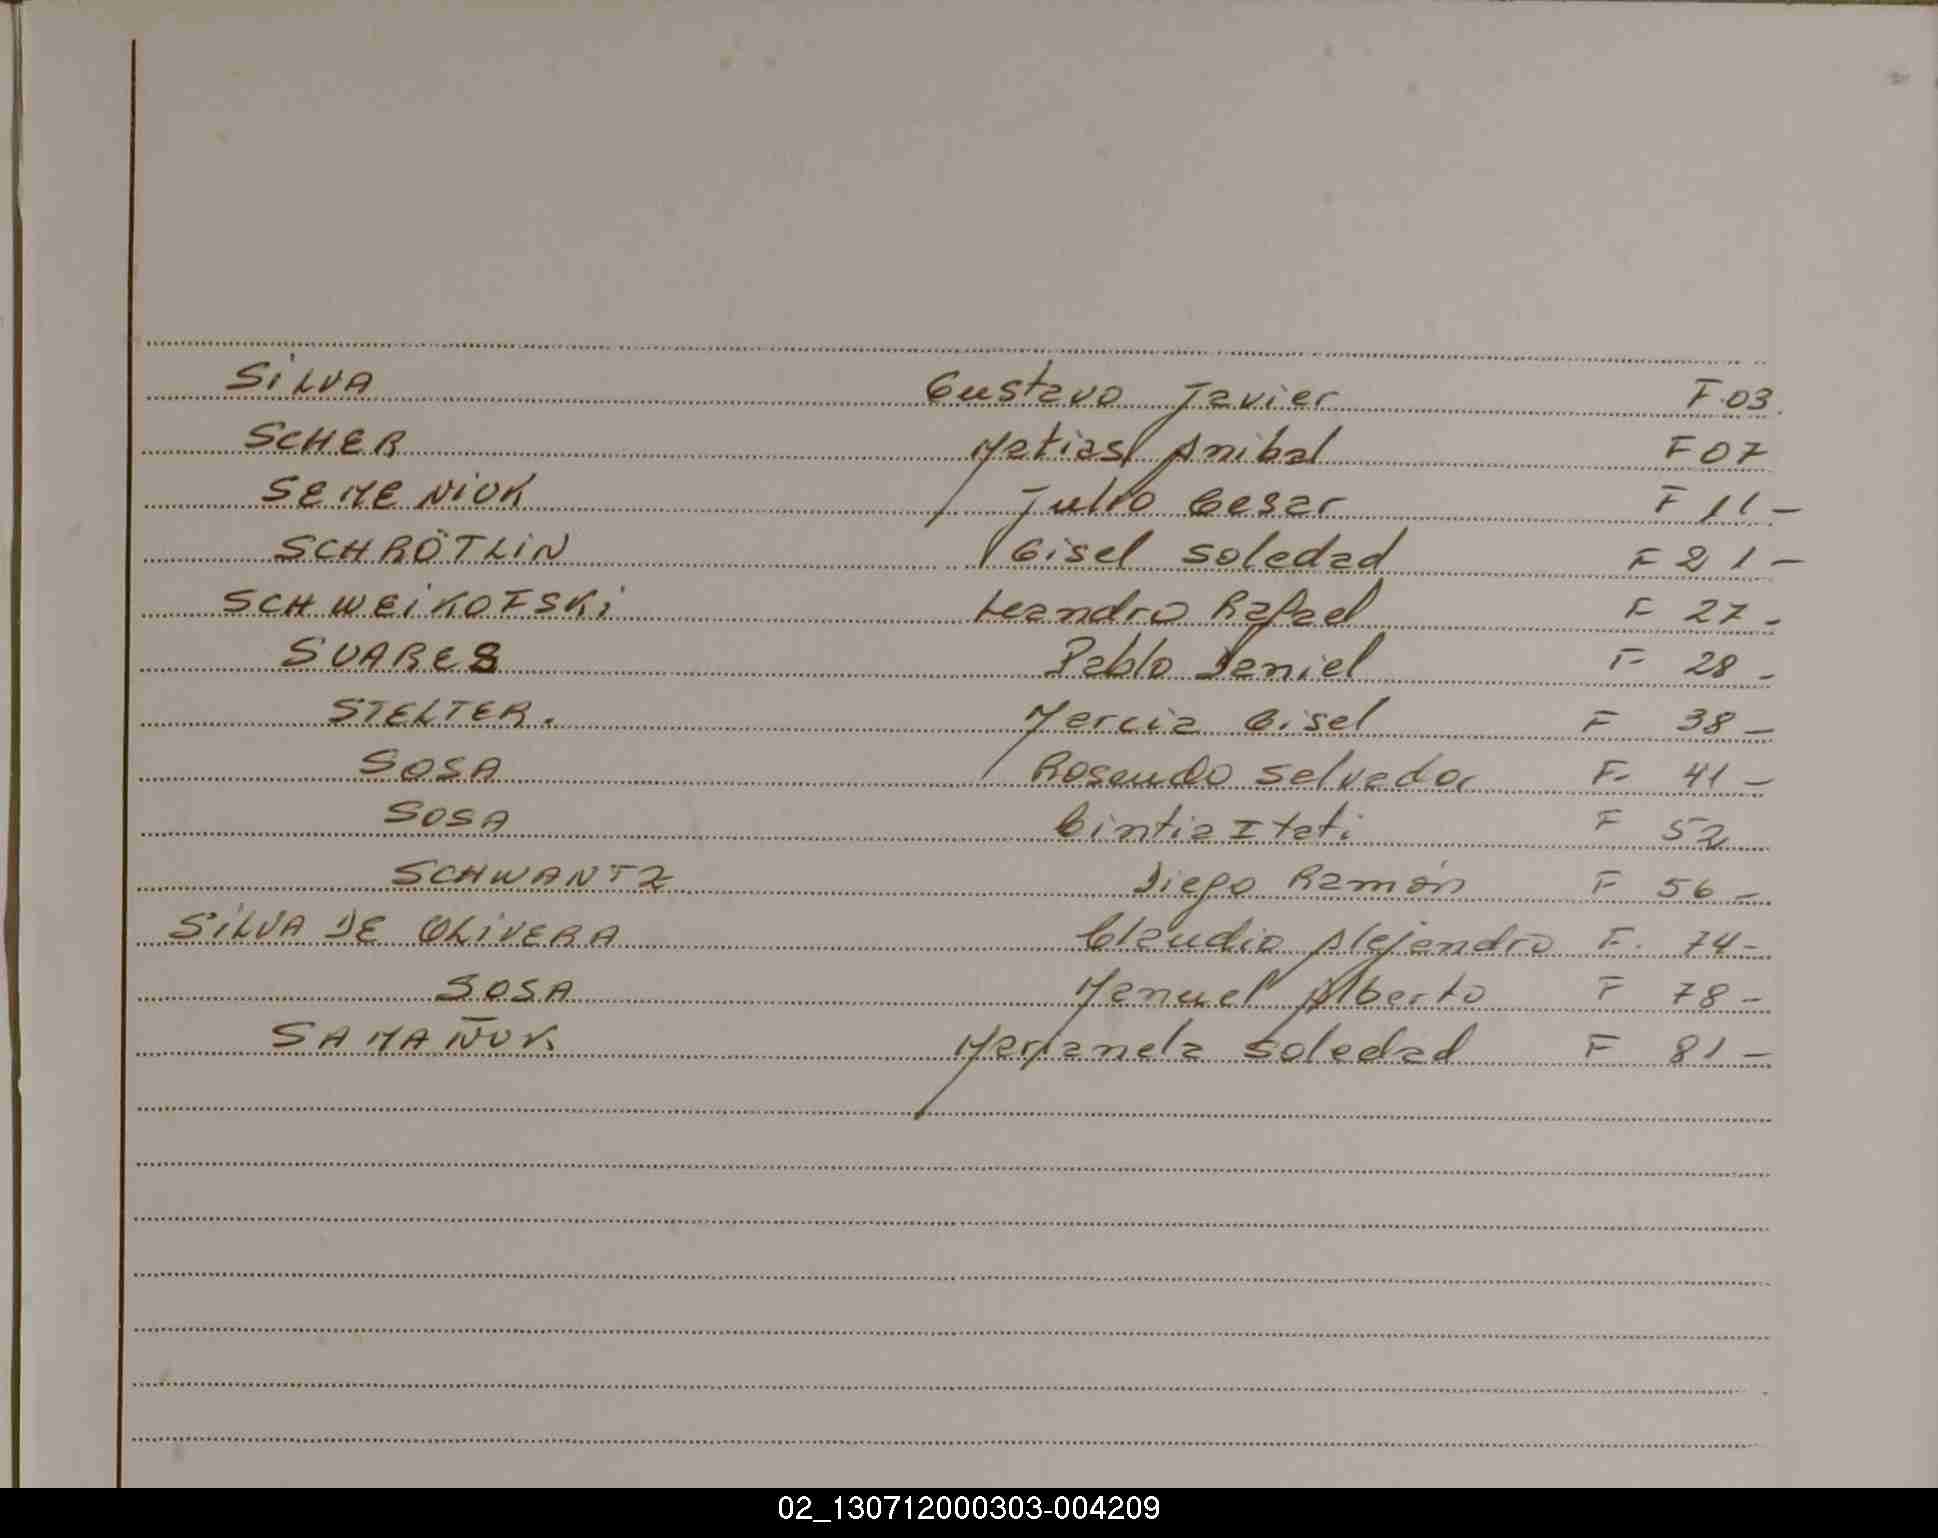 SILVA Gustavo Javier F.03.
SCHER Matias Anibal F 07
SEMENIUK Julio Cesar F 11 -
SCHRÖTLIN Gisel Soledad F 21 -
SCHWEIKOFSKI Leandro Rafael F 27 -
SUARES Pablo Daniel F- 28 -
STELTER. Marcia Gisel F 38 -
SOSA Rosendo Salvador F- 41 -
SOSA Cintia Itati F 52
SCHWANTZ Diego Ramón F 56 -
SILVA DE OLIVERA Claudio Alejandro F. 74 -
SOSA Manuel Alberto F 78 -
SAMAÑUK Marianela Soledad F 81 -
02_130712000303-004209